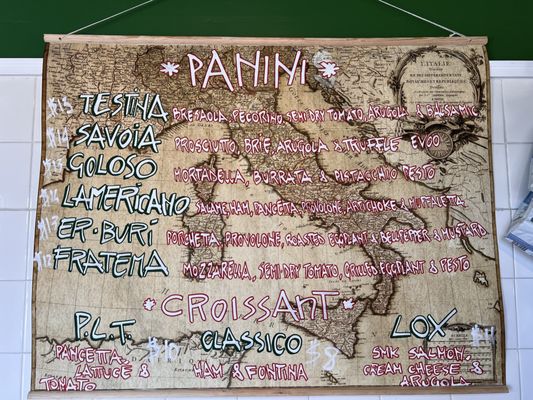 PANINI
$15 TESTINA BRESAOLA, PECORINO, SEMI-DRY TOMATO, ARUGOLA & BALSAMIC
$14 SAVOIA PROSCIUTTO, BRIE, ARUGOLA & TRUFFLE EVOO
$13 GOLOSO MORTADELLA, BURRATA & PISTACCHIO PESTO
LAMERICANO SALAME, HAM, PANCETTA, PROVOLONE, ARTICHOKE & MUFFALETTA
$13 ER·BURI PORCHETTA, PROVOLONE, ROASTED EGGPLANT & BELLPEPPER & MUSTARD
$12 FRATEMA MOZZARELLA, SEMI-DRY TOMATO, GRILLED EGGPLANT & PESTO
CROISSANT
P.L.T. PANCETTA, LATTUCE & TOMATO
CLASSICO $8 HAM & FONTINA
LOX SMK SALMON, CREAM CHEESE & ARUGOLA
L'ITALIE